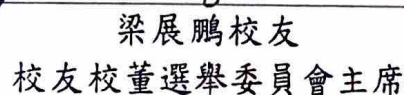 梁展鵬校友
校友校董選舉委員會主席